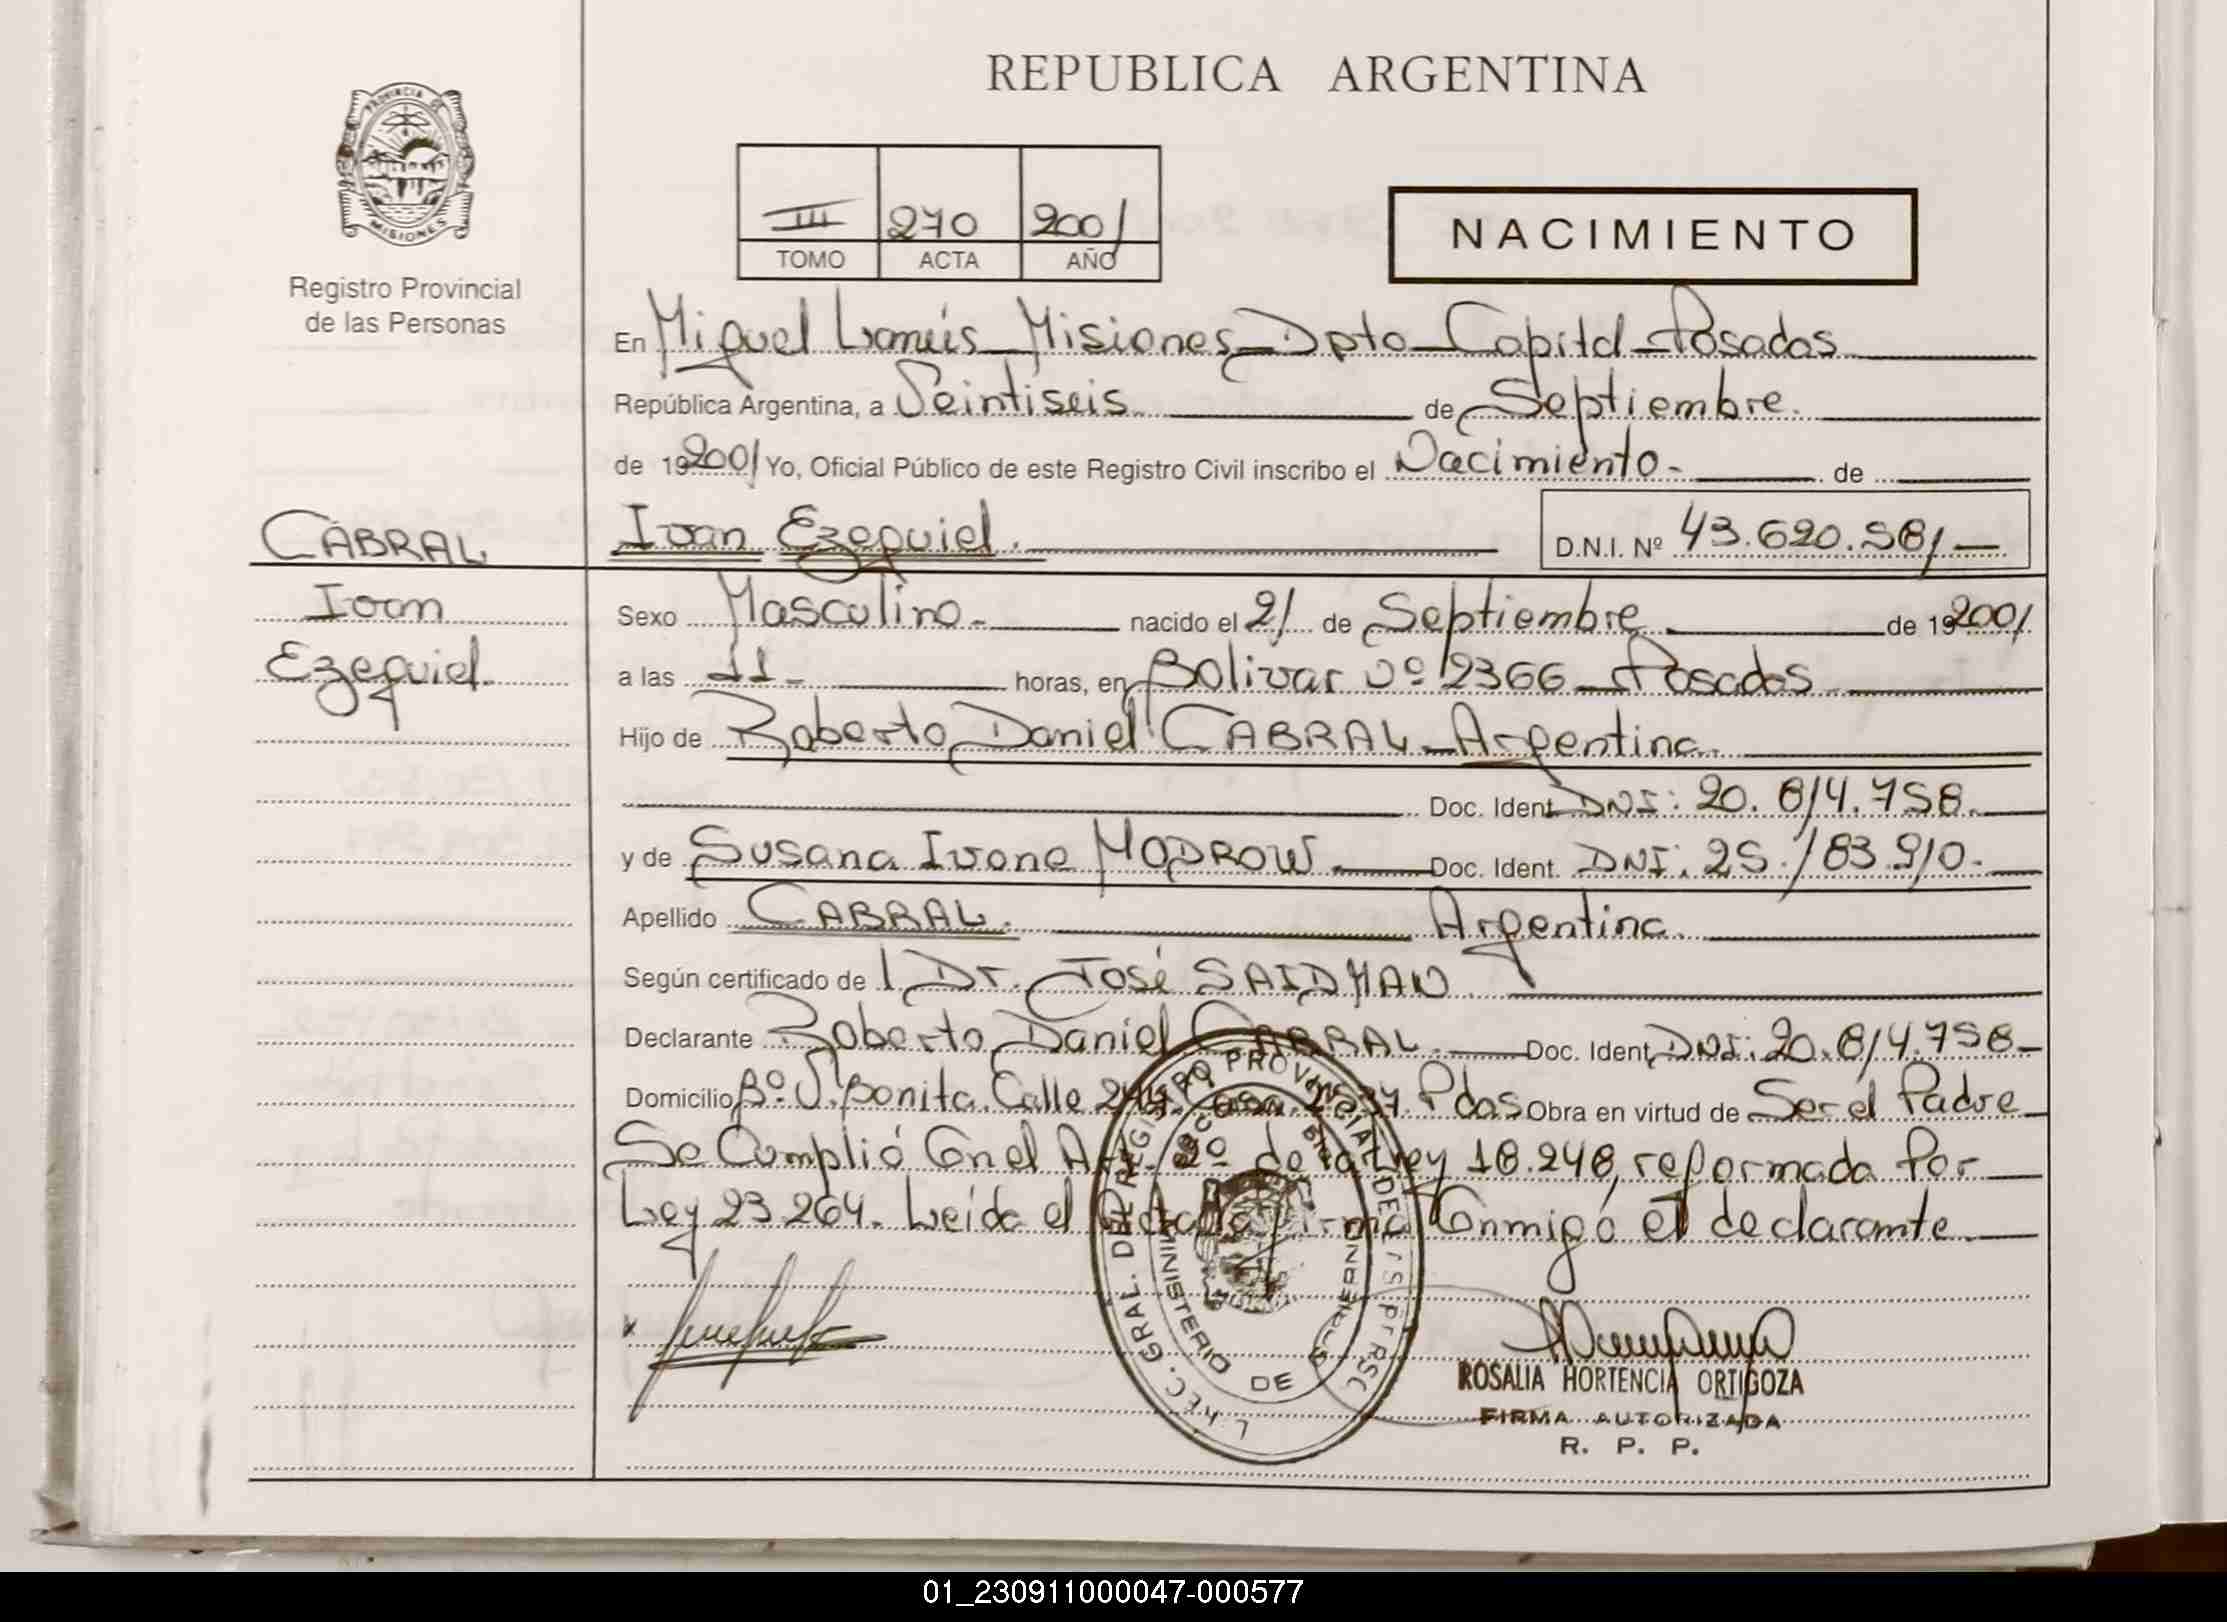 REPUBLICA ARGENTINA
PROVINCIA DE
MISIONES
Registro Provincial
de las Personas
III 270 2001
TOMO ACTA AÑO
NACIMIENTO
En Miguel Lanús Misiones Dpto Capital Posadas
República Argentina, a Veintiseis de Septiembre.
de 192001 Yo, Oficial Público de este Registro Civil inscribo el Nacimiento. de
CABRAL Ivan Ezequiel. D.N.I. Nº 43.620.581
Ivan Sexo Masculino nacido el 21 de Septiembre de 192001
Ezequiel. a las 11 horas, en Bolivar Nº 2366 Posadas
Hijo de Roberto Daniel CABRAL Argentina.
Doc. Ident. DNI: 20.814.758.
y de Susana Ivone MODROW. Doc. Ident. DNI: 25.183.910.
Apellido CABRAL. Argentina.
Según certificado de Dr. José SAIDMAN
Declarante Roberto Daniel CABRAL. Doc. Ident. DNI: 20.814.758
Domicilio Bº V. Bonita. Calle Pdas Obra en virtud de Ser el Padre
Se Cumplió Con el Art. 2º de la Ley 18.248, reformada Por
Ley 23264. Leída el Acta la Firma Conmigo el declarante
x
REGISTRO PROVINCIAL DE
MINISTERIO DE GOBIERNO
ROSALIA HORTENCIA ORTIGOZA
FIRMA AUTORIZADA
R. P. P.
01_230911000047-000577